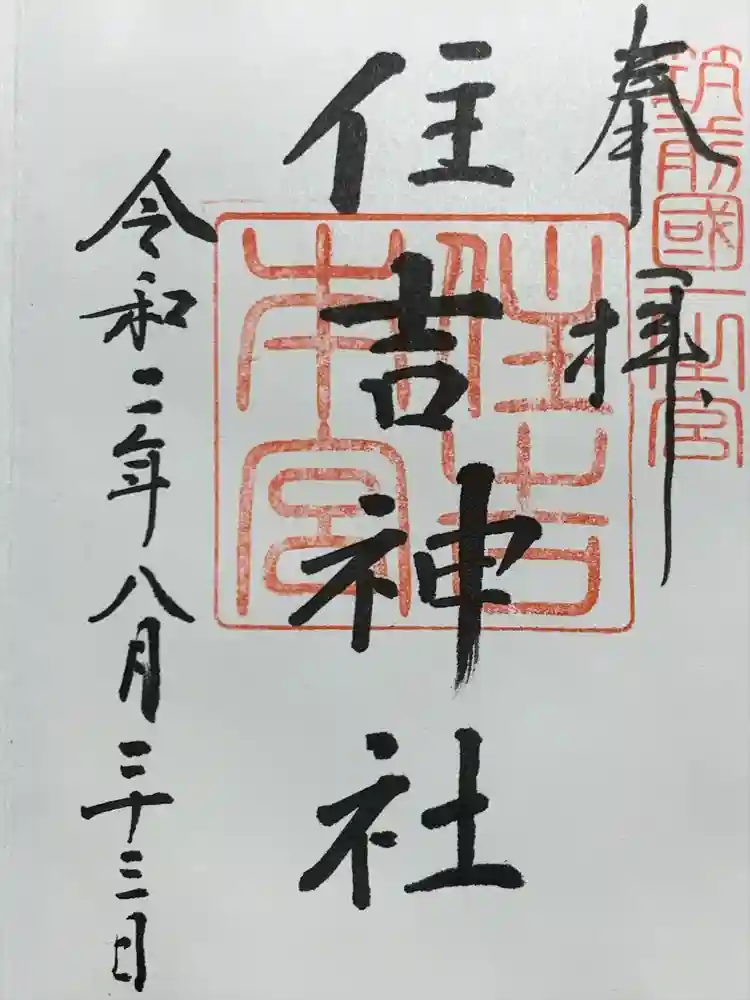 筑前國一之宮
奉拝
住吉神社
住吉
本宮
令和二年八月二十三日